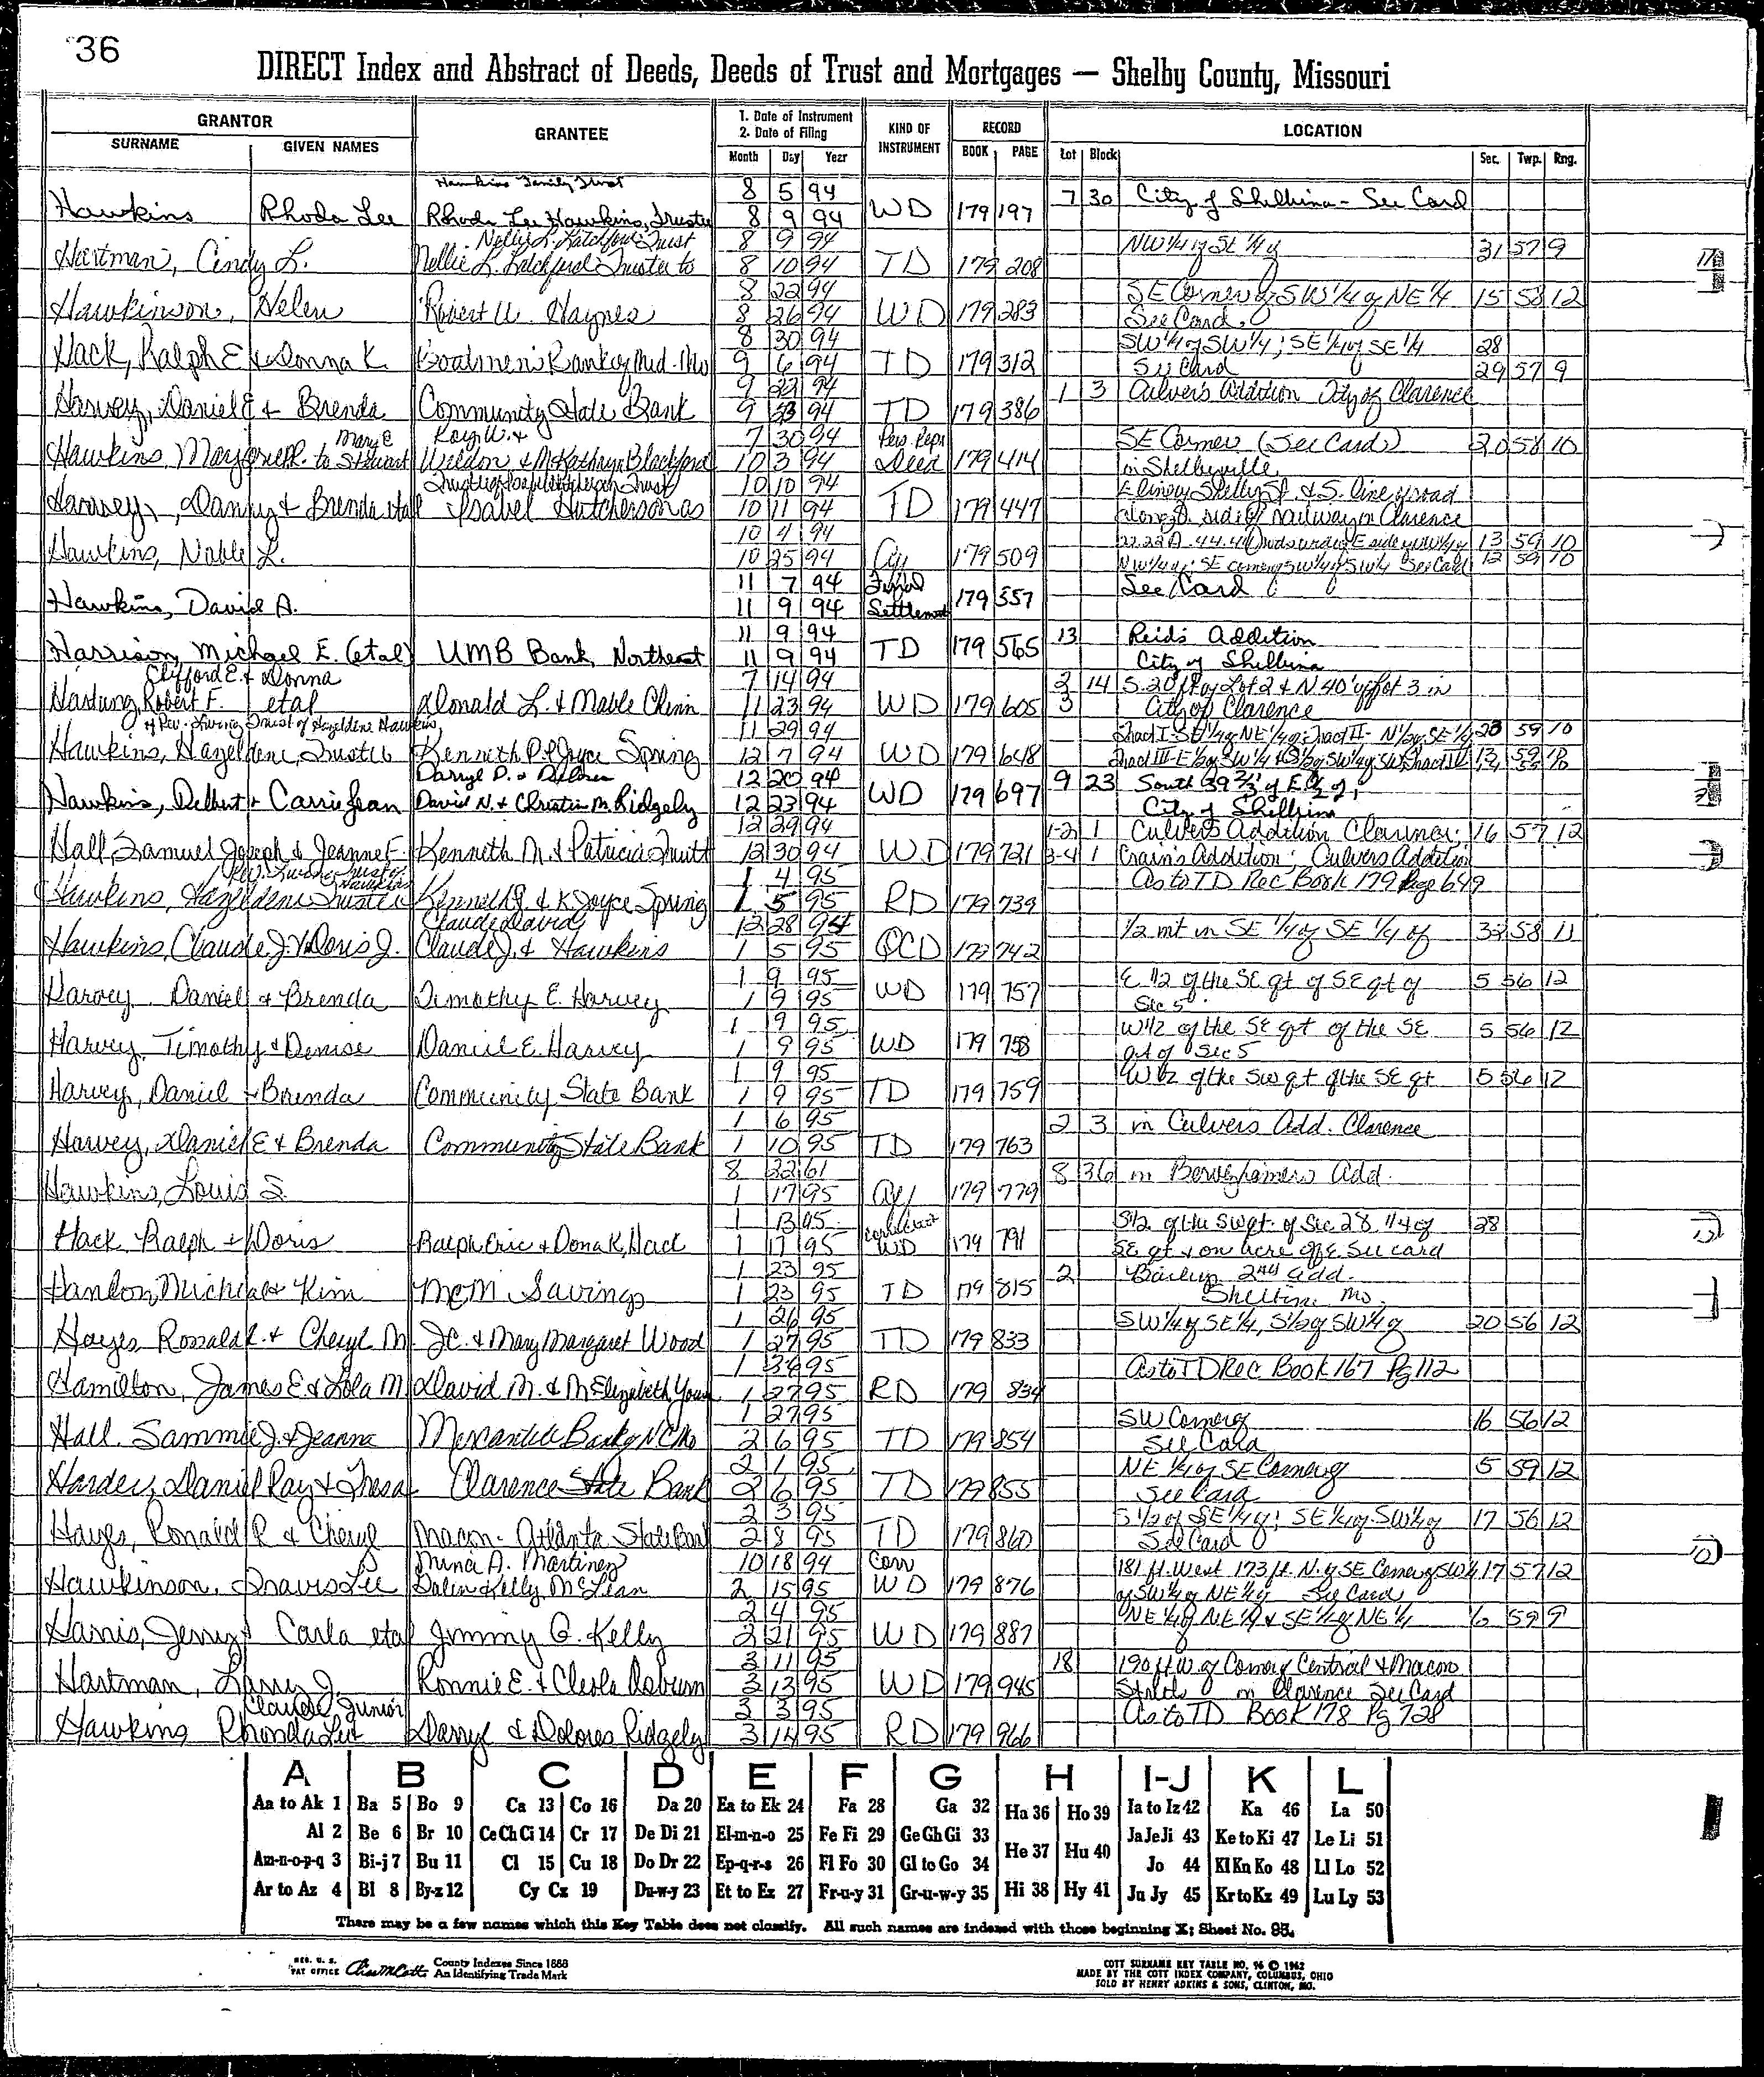 36
DIRECT Index and Abstract of Deeds, Deeds of Trust and Mortgages — Shelby County, Missouri
GRANTOR GRANTEE 1. Date of Instrument 2. Date of Filing KIND OF INSTRUMENT RECORD LOCATION
SURNAME GIVEN NAMES Month Day Year BOOK PAGE Lot Block Sec. Twp. Rng.
Hawkins Family Trust 8 5 94 7 30 City of Shelbina - See Card
Hawkins Rhoda Lee Rhoda Lee Hawkins, Trustee 8 9 94 WD 179 197
Nellie L. Trust 8 9 94 NW 1/4 of SE 1/4 of 31 57 9
Hartman, Cindy L. Nellie L. Trustee to 8 10 94 TD 179 208
8 22 94 SE Corner of SW 1/4 of NE 1/4 15 58 12
Hawkinson, Helen Robert W. Haynes 8 26 94 WD 179 283 See Card
8 30 94 SW 1/4 of SW 1/4; SE 1/4 of SE 1/4 28
Hack, Ralph E & Donna K. Boatmen's Bank of Mid-Mo 9 6 94 TD 179 312 See Card 29 57 9
9 94 1 3 Culver's Addition City of Clarence
Harvey, Daniel E & Brenda Community State Bank 9 23 94 TD 179 386
Mary E Roy W. & 7 30 94 Pers. Repr. SE Corner (See Card) 20 58 10
Hawkins, to Stewart Weldon & M Kathryn Blackford 10 3 94 Deed 179 414 in Shelbyville
10 10 94 E line of Shelby St. & S. line of road
Harvey, Danny & Brenda etal Isabel Hutcherson as 10 11 94 TD 179 447 along S. side of railway in Clarence
10 4 94 E side 13 59 10
Hawkins, Noble L. 10 25 94 179 509 SE corner SW 1/4 of SW 1/4 See Card 12 59 10
11 7 94 Final See Card
Hawkins, David A. 11 9 94 Settlement 179 557
11 9 94 13 Reid's Addition
Harrison, Michael E. (etal) UMB Bank, Northeast 11 9 94 TD 179 565 City of Shelbina
Clifford E. & Donna 7 14 94 2 14 S. 20 ft of Lot 2 & N. 40' of Lot 3 in
Hartung, Robert F. etal Donald L. & Mable Chinn 11 23 94 WD 179 605 3 City of Clarence
of Rev. Living Trust of Hazeldene Hawkins 11 29 94 Tract I- SE 1/4 of NE 1/4 of; Tract II- N 1/2 of SE 1/4 23 59 10
Hawkins, Hazeldene, Trustee Kenneth P. & Joyce Spring 12 7 94 WD 179 648
Darryl D. & 12 20 94 9 23 South 39 2/3' of E 1/2 of,
Hawkins, Delbert & Carrie Jean David N. & Christin M. Ridgely 12 23 94 WD 179 697 City of Shelbina
12 29 94 1-2 1 Culver's Addition Clarence; 16 57 12
Hall, Samuel Joseph & Jeanne F. Kenneth M. & Patricia 12 30 94 WD 179 721 3-4 1 Crain's Addition; Culvers Addition
Rev. Living Trust of Hawkins 1 4 95 As to TD Rec Book 179 Page 649
Hawkins, Hazeldene Trustee Kenneth P. & K Joyce Spring 1 5 95 RD 179 739
Claude David 12 28 94 1/2 int in SE 1/4 of SE 1/4 of 33 58 11
Hawkins, Claude J. & Doris J. Claude J. & Hawkins 1 5 95 QCD 179 742
1 9 95 E 1/2 of the SE qt of SE qt of 5 56 12
Harvey Daniel & Brenda Timothy E. Harvey 1 9 95 WD 179 757 Sec 5
1 9 95 W 1/2 of the SE qrt of the SE 5 56 12
Harvey, Timothy & Denise Daniel E. Harvey 1 9 95 WD 179 758 qrt of Sec 5
1 9 95 W 1/2 of the SW qt of the SE qt 5 56 12
Harvey, Daniel & Brenda Community State Bank 1 9 95 TD 179 759
1 6 95 2 3 in Culvers Add. Clarence
Harvey, Daniel E & Brenda Community State Bank 1 10 95 TD 179 763
8 22 61 8 36 in Add.
Hawkins, Louis S. 1 17 95 179 779
1 13 95 S 1/2 of the SW qt. of Sec. 28 28
Hack Ralph & Doris Ralph Eric & Dona K, Hack 1 17 95 WD 179 791 SE qt & on acre off E. See card
1 23 95 2 2nd add.
Hanlon, Michael & Kim MCM Savings 1 23 95 TD 179 815 Shelbina, Mo.
1 26 95 SW 1/4 of SE 1/4, S 1/2 of SW 1/4 of 20 56 12
Hayes Ronald R. & Cheryl M. JC. & Mary Margaret Wood 1 27 95 TD 179 833
1 95 As to TD Rec Book 167 Pg 112
Hamilton, James E & Lola M David M. & M Elizabeth 1 27 95 RD 179 834
1 27 95 SW Corner of 16 56 12
Hall, Sammie J. & Jeanna Mercantile Bank of NC Mo 2 6 95 TD 179 854 See Card
2 1 95 NE 1/4 of SE Corner of 5 59 12
Daniel Ray & Clarence State Bank 2 6 95 TD 179 855 See Card
2 3 95 S 1/2 of SE 1/4 of; SE 1/4 of SW 1/4 of 17 56 12
Hayes, Ronald R & Cheryl Macon-Atlanta State Bank 2 8 95 TD 179 860 See Card
Nina A. Martinez 10 18 94 Corr 181 ft. West 173 ft. N. of SE Corner of SW 1/4 17 57 12
Hawkinson, Travis Lee & Kelly McLean 2 15 95 WD 179 876 of SW 1/4 of NE 1/4 of See Card
2 4 95 NE 1/4 of NE 1/4 & SE 1/4 of NE 1/4 6 59 9
Harris, Jerry & Carla etal Jimmy G. Kelly 2 21 95 WD 179 887
3 11 95 18 190 ft W. of Corner of Central & Macon
Hartman, Larry J. Ronnie E. & Cleola Osburn 3 13 95 WD 179 945 Streets in Clarence See Card
Claude Junior 3 3 95 As to TD Book 178 Pg 728
Hawkins Rhonda Lee Darryl & Dolores Ridgely 3 14 95 RD 179 966
A B C D E F G H I-J K L
Aa to Ak 1 Ba 5 Bo 9 Ca 13 Co 16 Da 20 Ea to Ek 24 Fa 28 Ga 32 Ha 36 Ho 39 Ia to Iz 42 Ka 46 La 50
Al 2 Be 6 Br 10 Ce Ch Ci 14 Cr 17 De Di 21 El-m-n-o 25 Fe Fi 29 Ge Gh Gi 33 He 37 Hu 40 Ja Je Ji 43 Ke to Ki 47 Le Li 51
Am-n-o-p-q 3 Bi-j 7 Bu 11 Cl 15 Cu 18 Do Dr 22 Ep-q-r-s 26 Fl Fo 30 Gl to Go 34 Jo 44 Kl Kn Ko 48 Ll Lo 52
Ar to Az 4 Bl 8 By-z 12 Cy Cz 19 Du-w-y 23 Et to Ez 27 Fr-u-y 31 Gr-u-w-y 35 Hi 38 Hy 41 Ju Jy 45 Kr to Kz 49 Lu Ly 53
There may be a few names which this Key Table does not classify. All such names are indexed with those beginning X; Sheet No. 95.
REG. U. S. PAT OFFICE County Indexes Since 1888 An Identifying Trade Mark
COTT SURNAME KEY TABLE NO. 96 © 1962
MADE BY THE COTT INDEX COMPANY, COLUMBUS, OHIO
SOLD BY HENRY ADKINS & SONS, CLINTON, MO.